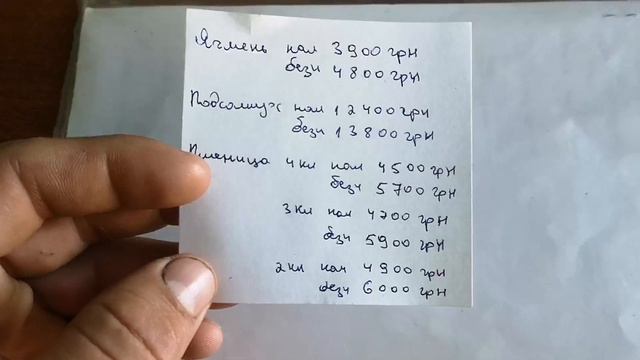 Ячмень нал 3900 грн
безн 4800 грн
Подсолнух нал 12400 грн
безн 13800 грн
Пшеница 4 кл нал 4500 грн
безн 5700 грн
3 кл нал 4700 грн
безн 5900 грн
2 кл нал 4900 грн
безн 6000 грн